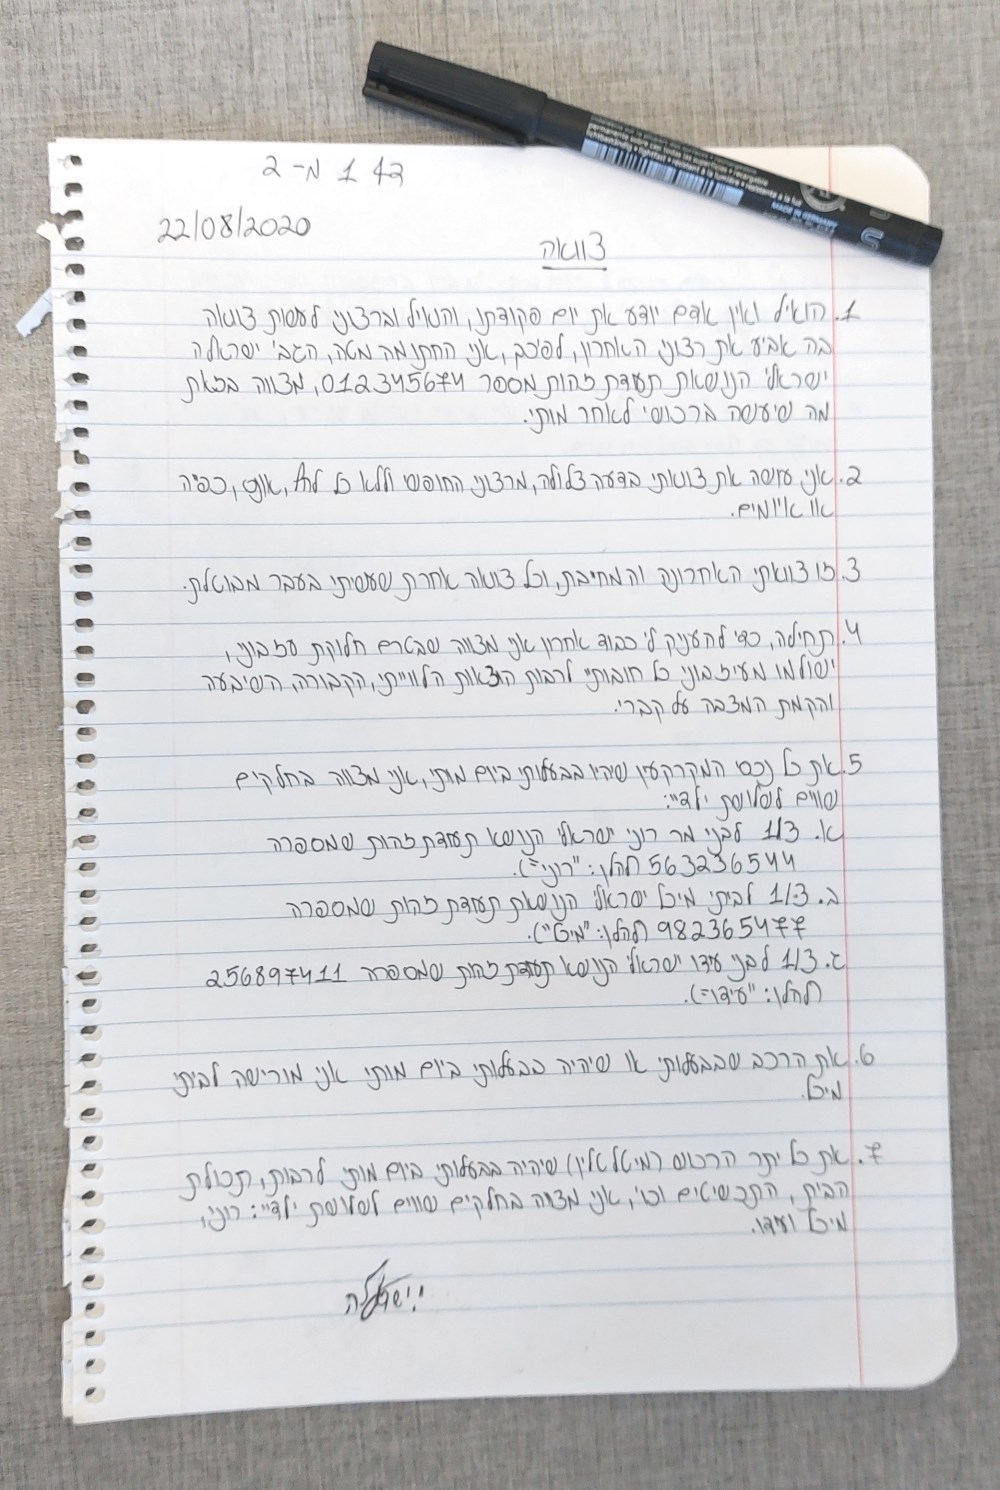 דף 1 מ-2
22/08/2020
צוואה
1. הואיל ואין אדם יודע את יום פקודתו, והואיל וברצוני לעשות צוואה
בה אביע את רצוני האחרון, לפיכך, אני החתומה מטה, הגב' ישראלה
ישראלי הנושאת תעודת זהות מספר 012345674, מצווה בזאת
מה שיעשה ברכושי לאחר מותי.
2. אני עושה את צוואתי בדעה צלולה, מרצוני החופשי וללא כל לחץ, אונס, כפיה
או איומים.
3. זו צוואתי האחרונה והמחייבת, וכל צוואה אחרת שעשיתי בעבר מבוטלת.
4. תחילה, כדי להעניק לי כבוד אחרון אני מצווה שבטרם חלוקת עזבוני,
ישולמו מעיזבוני כל חובותי לרבות הוצאות הלווייתי, הקבורה, השיבעה
והקמת המצבה על קברי.
5. את כל נכסי המקרקעין שיהיו בבעלותי ביום מותי, אני מצווה בחלקים
שווים לשלושת ילדיי:
א. 1/3 לבני מר רוני ישראלי הנושא תעודת זהות שמספרה
563236544 (להלן: "רוני").
ב. 1/3 לביתי מיכל ישראלי הנושאת תעודת זהות שמספרה
982365477 (להלן: "מיכל").
ג. 1/3 לבני עידו ישראלי הנושא תעודת זהות שמספרה 256897411
(להלן: "עידו").
6. את הרכב שבבעלותי או שיהיה בבעלותי ביום מותי אני מורישה לביתי
מיכל.
7. את כל יתר הרכוש (מיטלטלין) שיהיה בבעלותי ביום מותי לרבות, תכולת
הבית, התכשיטים וכו', אני מצווה בחלקים שווים לשלושת ילדיי: רוני,
מיכל ועידו.
MADE IN GERMANY